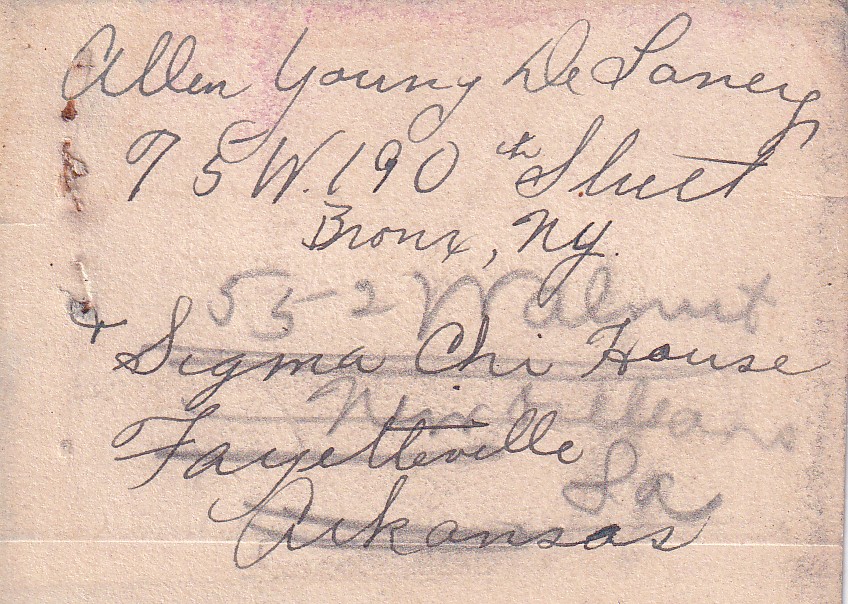 Allen Young DeLaney
75 W. 190th Street
Bronx, NY.
552 Walnut
+ Sigma Chi House
New Orleans
Fayetteville
La
Arkansas